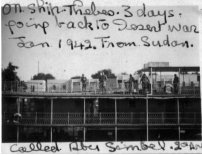 on ship. Thebes. 3 days.
going back to Desert War
Jan 1942. From Sudan.
Called Abu Simbel.